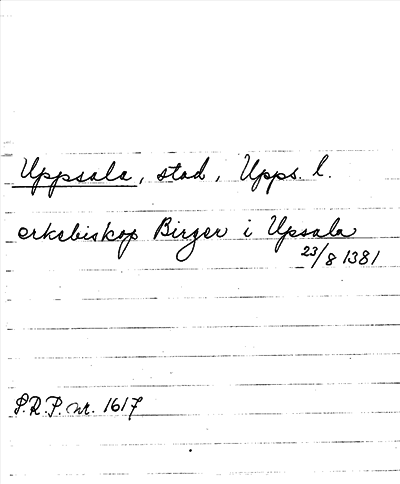 Uppsala, stad, Upps. l.
erkebiskop Birger i Upsala
23/8 1381
S.R.P. nr. 1617